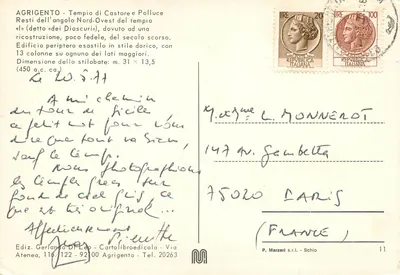 AGRIGENTO - Tempio di Castore e Polluce
Resti dell'angolo Nord-Ovest del tempio
«I» (detto «dei Dioscuri»), dovuto ad una
ricostruzione, poco fedele, del secolo scorso.
Edificio periptero esastilo in stile dorico, con
13 colonne su ognuno dei lati maggiori.
Dimensione dello stilobate: m. 31 × 13,5
(450 a.c. ca.)
Le 20.5.77
A mi chemin
du tour de Sicile
ce petit mot pour vous
dire que tout va bien,
sauf le temps.
Nous photographions
les temples grecs sur
fond de ciel gris, ce
qui est très original...
Affectueusement
Pierrette
Ediz. Gerlando Di Leo - Cartolibroedicola - Via
Atenea, 116/122 - 92100 Agrigento - Tel. 20263
20
100
M. et Mme L. MONNEROT
147 Av. Gambetta
75020 PARIS
(FRANCE)
P. Marzari s.r.l. - Schio
11